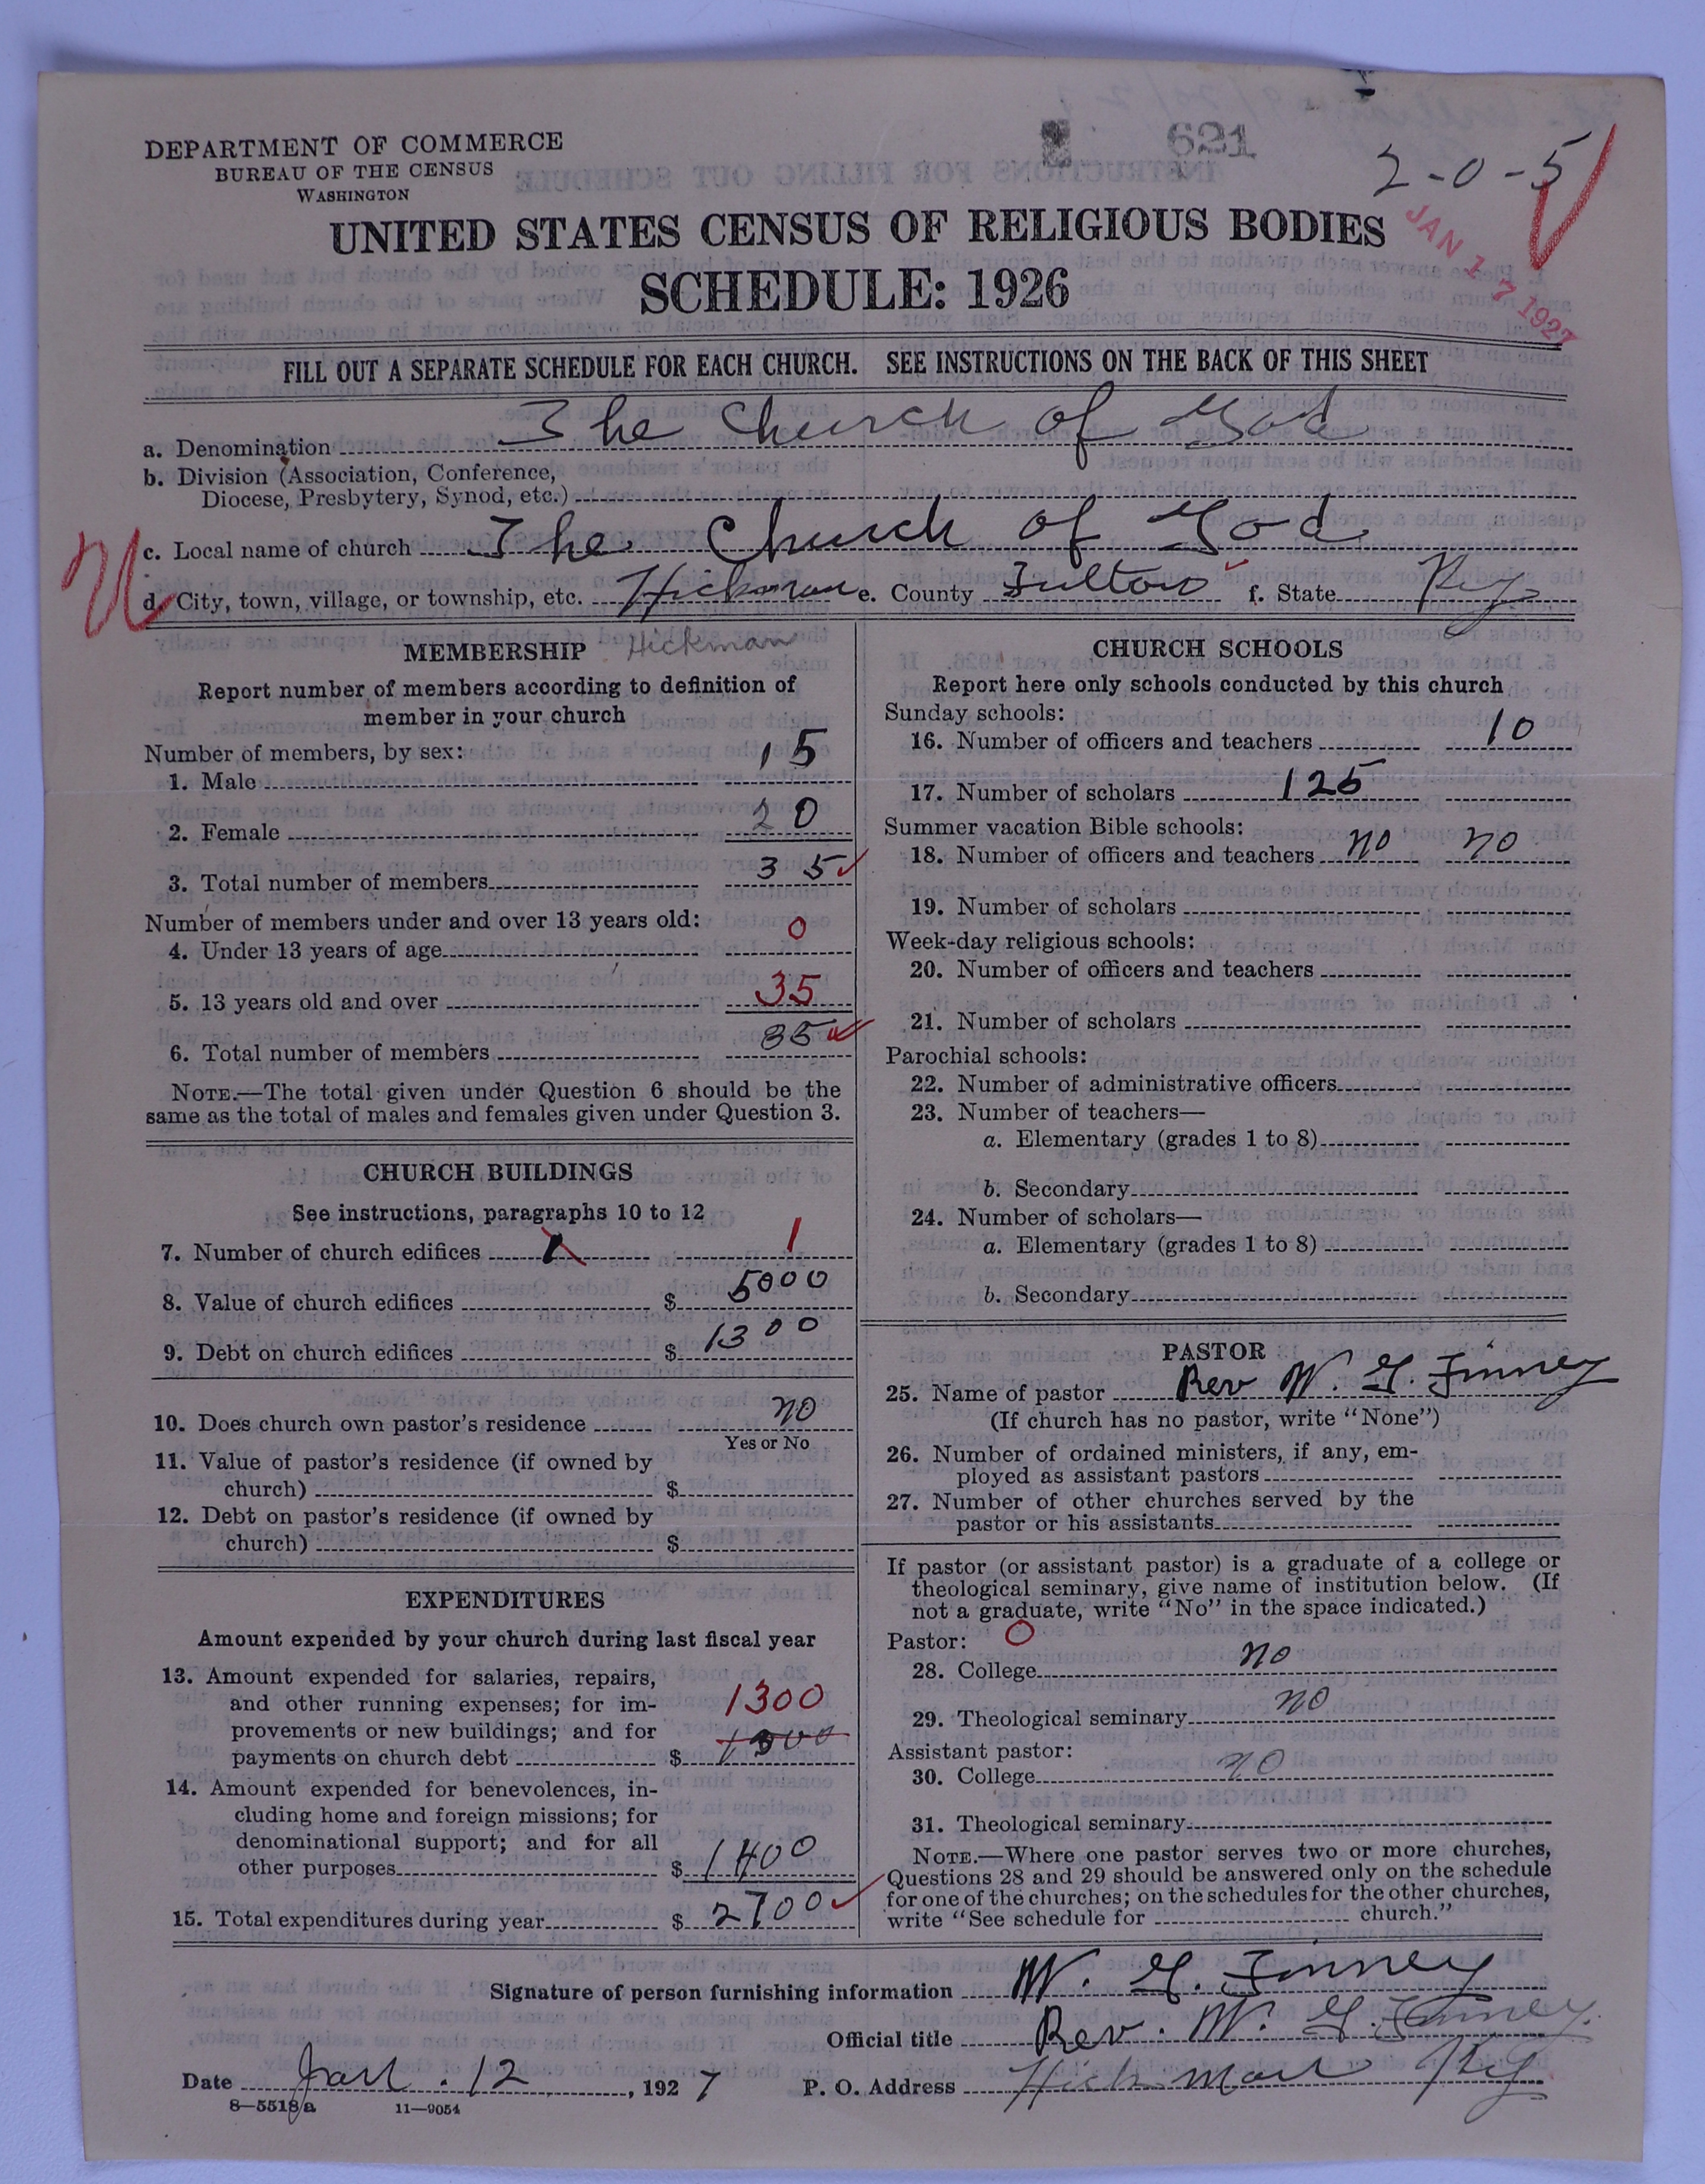 621
2-0-5
DEPARTMENT OF COMMERCE
BUREAU OF THE CENSUS
WASHINGTON
UNITED STATES CENSUS OF RELIGIOUS BODIES
JAN 17 1927
SCHEDULE: 1926
FILL OUT A SEPARATE SCHEDULE FOR EACH CHURCH. SEE INSTRUCTIONS ON THE BACK OF THIS SHEET
a. Denomination The Church of God
b. Division (Association, Conference,
Diocese, Presbytery, Synod, etc.)
c. Local name of church The Church of God
d. City, town, village, or township, etc. Hickman e. County Fulton f. State Ky
MEMBERSHIP Hickman
Report number of members according to definition of
member in your church
Number of members, by sex:
1. Male 15
2. Female 20
3. Total number of members 35
Number of members under and over 13 years old:
4. Under 13 years of age 0
5. 13 years old and over 35
6. Total number of members 35
NOTE.—The total given under Question 6 should be the
same as the total of males and females given under Question 3.
CHURCH BUILDINGS
See instructions, paragraphs 10 to 12
7. Number of church edifices 1 1
8. Value of church edifices $ 5000
9. Debt on church edifices $ 1300
10. Does church own pastor's residence no
Yes or No
11. Value of pastor's residence (if owned by
church) $
12. Debt on pastor's residence (if owned by
church) $
EXPENDITURES
Amount expended by your church during last fiscal year
13. Amount expended for salaries, repairs,
and other running expenses; for im-
1300
provements or new buildings; and for
payments on church debt $ 1300
14. Amount expended for benevolences, in-
cluding home and foreign missions; for
denominational support; and for all
other purposes $ 1400
15. Total expenditures during year $ 2700
CHURCH SCHOOLS
Report here only schools conducted by this church
Sunday schools:
16. Number of officers and teachers 10
17. Number of scholars 125
Summer vacation Bible schools:
18. Number of officers and teachers no no
19. Number of scholars
Week-day religious schools:
20. Number of officers and teachers
21. Number of scholars
Parochial schools:
22. Number of administrative officers
23. Number of teachers—
a. Elementary (grades 1 to 8)
b. Secondary
24. Number of scholars—
a. Elementary (grades 1 to 8)
b. Secondary
PASTOR
25. Name of pastor Rev W. G. Finney
(If church has no pastor, write "None")
26. Number of ordained ministers, if any, em-
ployed as assistant pastors
27. Number of other churches served by the
pastor or his assistants
If pastor (or assistant pastor) is a graduate of a college or
theological seminary, give name of institution below. (If
not a graduate, write "No" in the space indicated.)
Pastor: 0
28. College no
29. Theological seminary no
Assistant pastor:
30. College no
31. Theological seminary
NOTE.—Where one pastor serves two or more churches,
Questions 28 and 29 should be answered only on the schedule
for one of the churches; on the schedules for the other churches,
write "See schedule for church."
Signature of person furnishing information W. G. Finney
Official title Rev. W. G. Finney.
Date Jan. 12, 1927 P. O. Address Hickman Ky
8—5518a 11—9054